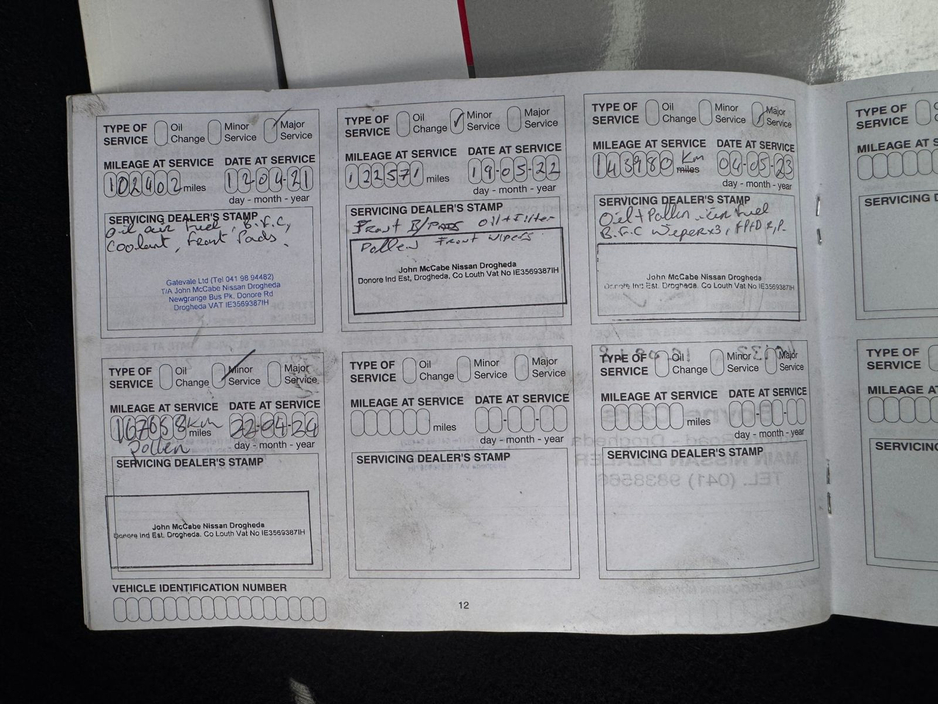 TYPE OF SERVICE Oil Change Minor Service Major Service
MILEAGE AT SERVICE DATE AT SERVICE
102402 miles 12-04-21
day - month - year
SERVICING DEALER'S STAMP
Oil air fuel, B.F.C,
Coolant, Front Pads.
Galevale Ltd (Tel 041 98 94482)
T/A John McCabe Nissan Drogheda
Newgrange Bus Pk. Donore Rd
Drogheda VAT IE3569387IH
TYPE OF SERVICE Oil Change Minor Service Major Service
MILEAGE AT SERVICE DATE AT SERVICE
122571 miles 19-05-22
day - month - year
SERVICING DEALER'S STAMP
Front Oil+Filter
Pollen Front Wipers
John McCabe Nissan Drogheda
Donore Ind Est, Drogheda, Co Louth Vat No IE3569387IH
TYPE OF SERVICE Oil Change Minor Service Major Service
MILEAGE AT SERVICE DATE AT SERVICE
143980 Km miles 04-05-23
day - month - year
SERVICING DEALER'S STAMP
Oil + Pollen Air fuel
B.F.C
John McCabe Nissan Drogheda
Donore Ind Est. Drogheda. Co Louth Vat No IE3569387IH
TYPE OF SERVICE Oil Change Minor Service Major Service
MILEAGE AT SERVICE DATE AT SERVICE
Km miles 22-04-24
Pollen day - month - year
SERVICING DEALER'S STAMP
John McCabe Nissan Drogheda
Donore Ind Est. Drogheda. Co Louth Vat No IE3569387IH
TYPE OF SERVICE Oil Change Minor Service Major Service
MILEAGE AT SERVICE DATE AT SERVICE
miles
day - month - year
SERVICING DEALER'S STAMP
TYPE OF SERVICE Oil Change Minor Service Major Service
MILEAGE AT SERVICE DATE AT SERVICE
miles
day - month - year
SERVICING DEALER'S STAMP
VEHICLE IDENTIFICATION NUMBER
12
TYPE OF SERVICE
MILEAGE AT S
SERVICING D
TYPE OF SERVICE
MILEAGE A
SERVICIN